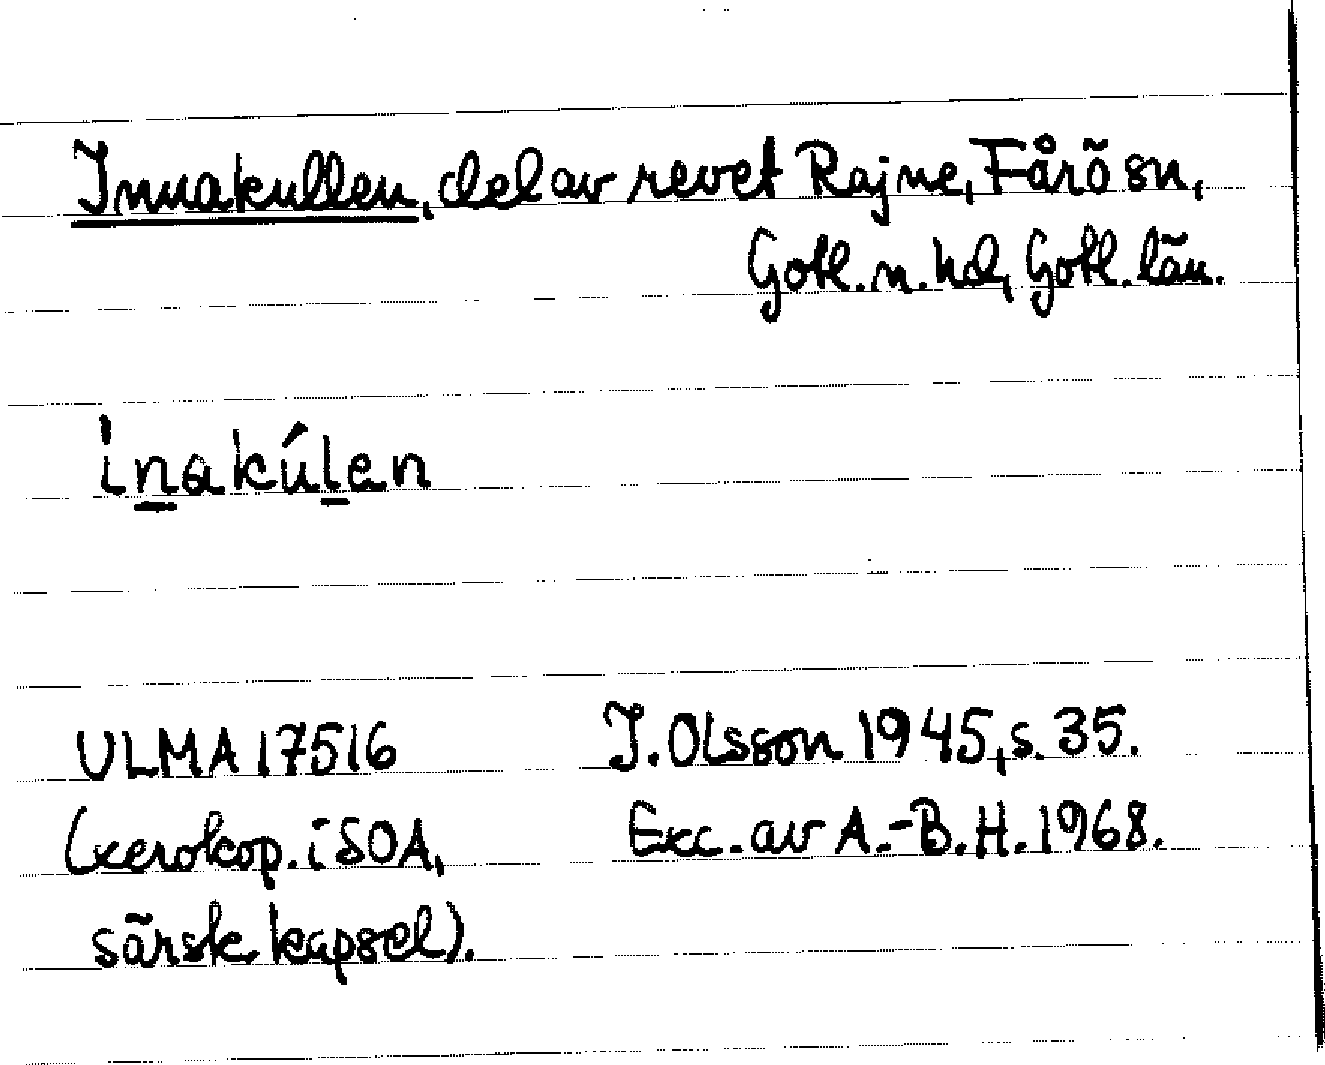 Innakullen, del av revet Rajne, Fårö sn,
Gotl. n. hd, Gotl. län.
i̍n̲akúl̲en
ULMA 17516 J. Olsson 1945, s. 35.
(xerokop. i SOA, Exc. av A.-B. H. 1968.
särsk. kapsel).